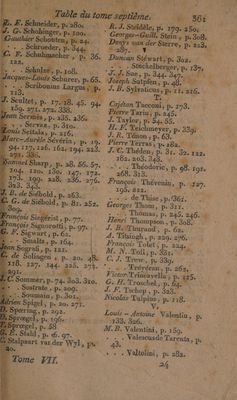 Table du tome septième. 361
R. F. Schneider, p. 280.
L. G. Schohinger, p. 100.
Gauthier Schouten, p. 24.
. . . Schroeder, p. 344.
C. F. Schuhmacher, p. 36.
122.
. . . Schulze, p. 108.
Jacques-Louis Schurer, p. 65.
. . . Scribonius Largus, p.
113.
J. Scultet, p. 17. 18. 45. 94.
159. 271. 272. 338.
Jean Sermès, p. 235. 236.
. . . Servaz, p. 310.
Louis Settala, p. 216.
Marc-Aurèle Séverin, p. 19.
94. 117. 126. 161. 194. 223.
271. 338.
Samuel Sharp, p. 28. 56. 57.
104. 120. 130. 147. 172.
175. 199. 228. 236. 276.
323. 343.
J. B. de Siébold, p. 263.
C. G. de Siébold, p. 81. 252.
322.
François Siegerist, p. 77.
François Signorotti, p. 97.
G. F. Sigwart, p. 62.
. . . Smaltz, p. 164.
Jean Sograti, p. 122.
C. de Solingen, p. 20. 48.
118. 127. 144. 225. 272.
291.
J. C. Sommer, p. 74. 303. 310.
. . . Sostrate, p. 209.
. . . Soumain, p. 301.
Adrien Spigel, p. 20. 271.
D. Sperring, p. 292.
D. Sprœgel, p. 196.
T. Sprœgel, p. 58
G. E. Stahl, p. 96. 97.
C. Stalpaart van der Wyl, p.
20.
Tome VII.
R. J. Steidèle, p. 179. 250.
Georges-Guill. Stein, p. 308.
Denys van der Sterre, p. 213.
287.
Duncan Stewart, p. 302.
. . . Stockelberger, p. 137.
J. J. Sue, p. 344. 347.
Joseph Sutpfen, p. 48.
J. B. Sylvaticus, p. 11. 216.
T.
Cajétan Tacconi, p. 273.
Pierre Tarin, p. 245.
J. Taylor, p. 54. 55.
H. F. Teichmeyer, p. 339.
J. R. Ténon, p. 63.
Pierre Terras, p. 182.
J. C. Théden, p. 31. 32. 122.
182. 203. 343.
. . . Théodoric, p. 98. 191.
268. 313.
François Thévenin, p. 127.
195. 222.
. . . de Thise, p. 361.
Georges Thom, p. 311.
. . . Thomas, p. 245. 246.
Henri Thompson, p. 308.
J. B. Thurant, p. 62.
A. Titsingh, p. 229. 276.
François Tolet, p. 224.
M. N. Toll, p. 331.
C. J. Trew, p. 339.
. . . Treyéran, p. 262.
Victor Trincavella, p. 125.
G. H. Troschel, p. 64.
J. F. Tschep, p. 328.
Nicolas Tulpius, p. 118.
V.
Louis-Antoine Valentin, p.
133. 326.
M. B. Valentini, p. 159.
. . . Valescus de Tarenta, p.
43.
. . . Valtolini, p. 282.
24